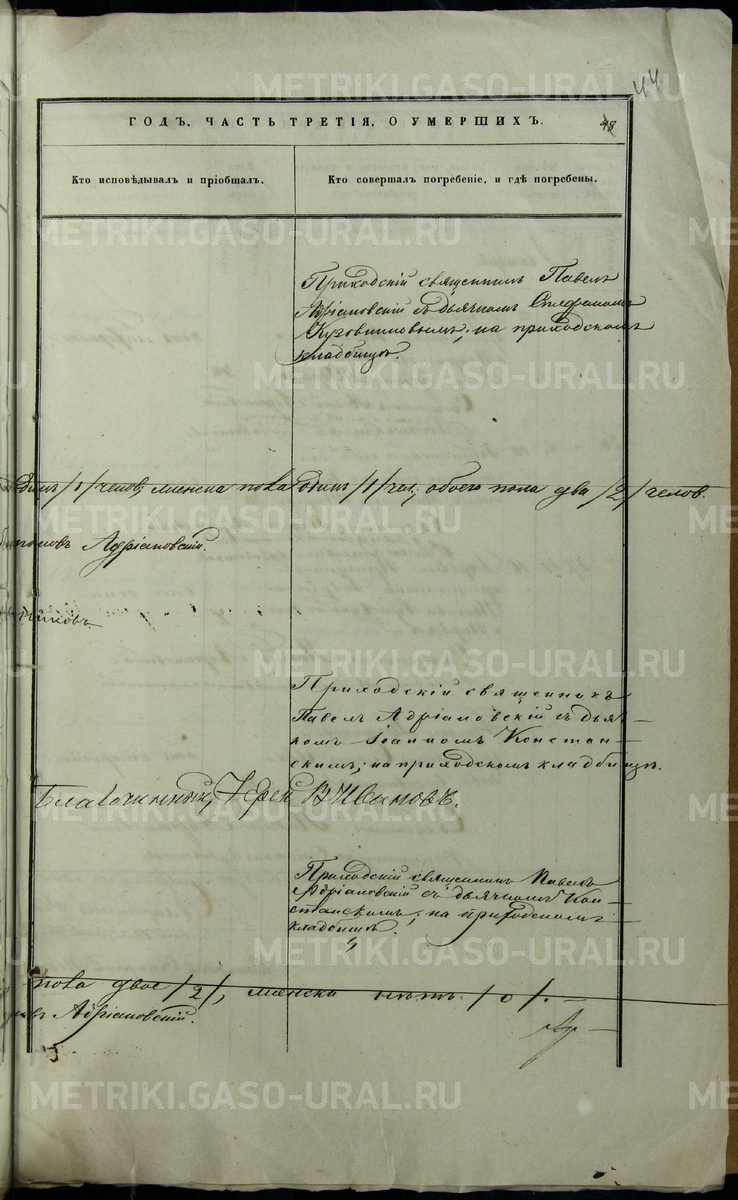 44
ГОДЪ. ЧАСТЬ ТРЕТІЯ. О УМЕРШИХЪ.
48
Кто исповѣдывалъ и пріобщалъ.
Кто совершалъ погребеніе, и гдѣ погребены.
Приходскій священникъ Павелъ
Адріановскій съ дьячкомъ Стефаномъ
на приходскомъ
кладбищѣ.
/1/ челов; женска пола одинъ /1/ чел.; обоего пола два /2/ челов.
Адріановскій.
Приходскій священникъ
Павелъ Адріановскій съ дьяч-
комъ Іоанномъ Констан-
скимъ; на приходскомъ кладбищѣ.
Благочинный, Іерей В Ивановъ.
Приходскій священникъ Павелъ
Адріановскій съ дьячкомъ Кон-
станскомъ; на приходскомъ
кладбищѣ.
пола двое /2/, женска нѣтъ /0/. —
Адріановскій.
METRIKI.GASO-URAL.RU